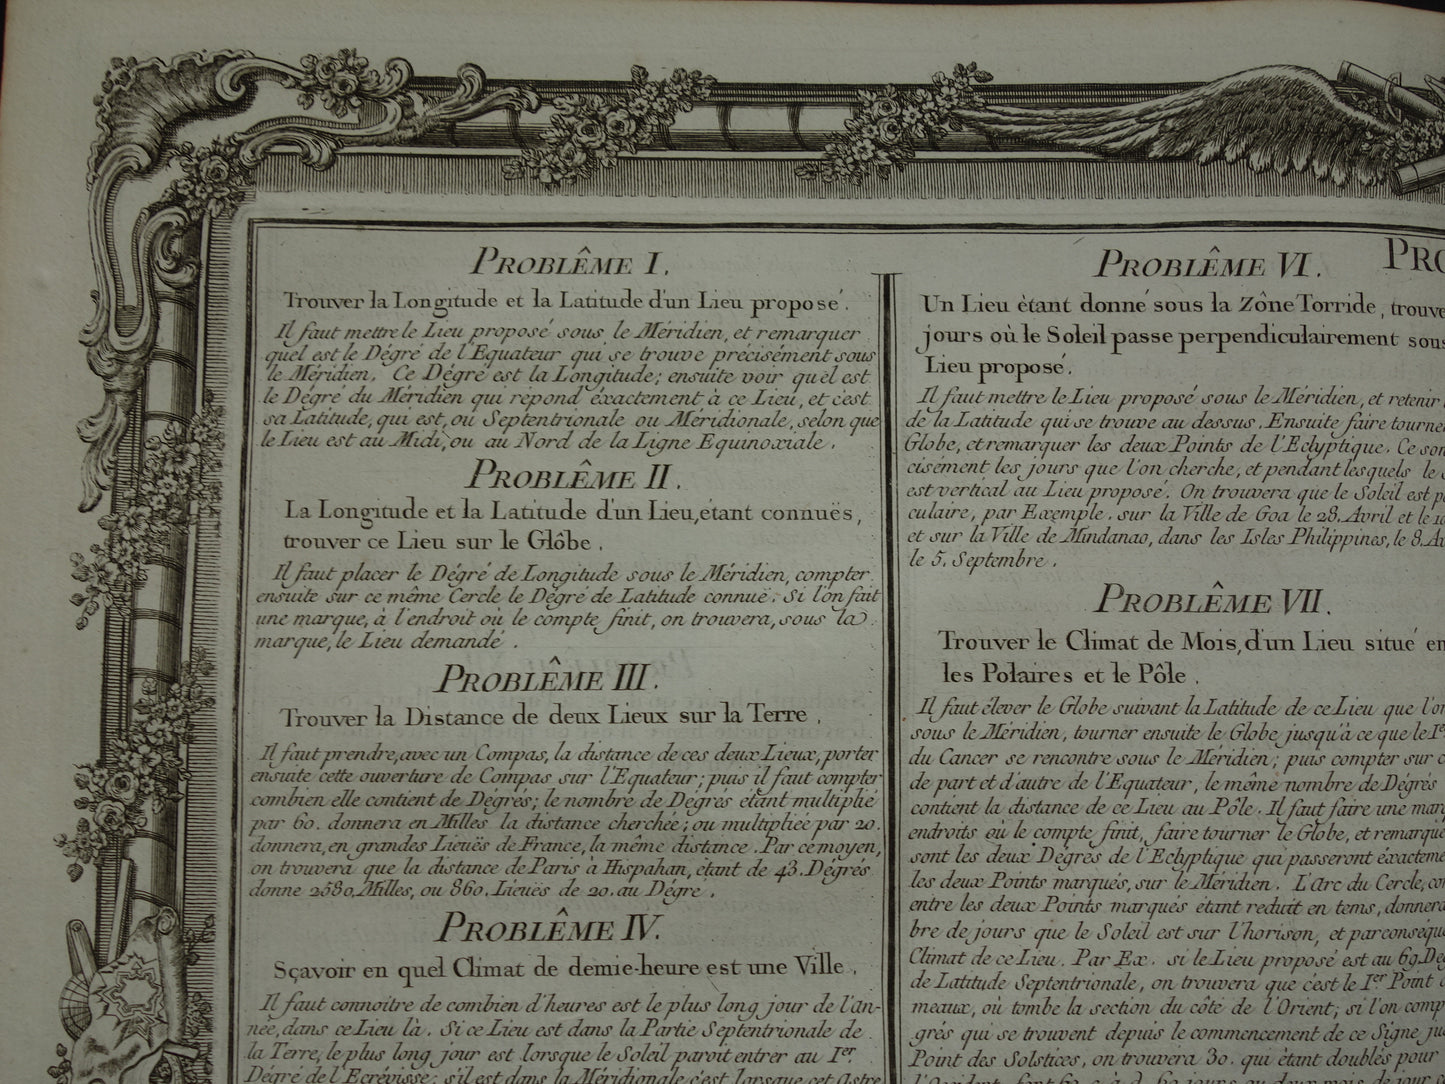 PROBLÊME I.
Trouver la Longitude et la Latitude d'un Lieu proposé.
Il faut mettre le Lieu proposé sous le Méridien, et remarquer
quel est le Dégré de l'Equateur qui se trouve précisément sous
le Méridien. Ce Dégré est la Longitude; ensuite voir quel est
le Dégré du Méridien qui répond éxactement à ce Lieu, et c'est
sa Latitude, qui est, ou Septentrionale ou Méridionale, selon que
le Lieu est au Midi, ou au Nord de la Ligne Equinoxiale.
PROBLÊME II.
La Longitude et la Latitude d'un Lieu, étant connuës,
trouver ce Lieu sur le Glôbe.
Il faut placer le Dégré de Longitude sous le Méridien, compter
ensuite sur ce même Cercle le Dégré de Latitude connuë. Si l'on fait
une marque, à l'endroit où le compte finit, on trouvera, sous la
marque, le Lieu demandé.
PROBLÊME III.
Trouver la Distance de deux Lieux sur la Terre.
Il faut prendre, avec un Compas, la distance de ces deux Lieux, porter
ensuite cette ouverture de Compas sur l'Equateur; puis il faut compter
combien elle contient de Dégrés; le nombre de Dégrés étant multiplié
par 60. donnera en Milles la distance cherchée; ou multipliée par 20.
donnera, en grandes Lieuës de France, la même distance. Par ce moyen,
on trouvera que la distance de Paris à Hispahan, étant de 43. Dégrés
donne 2580. Milles, ou 860. Lieuës de 20. au Dégré.
PROBLÊME IV.
Sçavoir en quel Climat de demie-heure est une Ville.
Il faut connoitre de combien d'heures est le plus long jour de l'An-
née, dans ce Lieu là. Si ce Lieu est dans la Partie Septentrionale de
la Terre, le plus long jour est lorsque le Soleil paroit entrer au Ier.
Dégré de l'Ecrévisse; s'il est dans la Méridionale c'est lorsque cet Astre
PROBLÊME VI.
Un Lieu étant donné sous la Zône Torride, trouve
jours où le Soleil passe perpendiculairement sous
Lieu proposé.
Il faut mettre le Lieu proposé sous le Méridien, et retenir
de la Latitude qui se trouve au dessus. Ensuite faire tourne
Globe, et remarquer les deux Points de l'Eclyptique. Ce son
cisément les jours que l'on cherche, et pendant lesquels le
est vertical au Lieu proposé. On trouvera que le Soleil est
culaire, par Exemple. sur la Ville de Goa le 28. Avril et le
et sur la Ville de Mindanao, dans les Isles Philippines, le 8. A
le 5. Septembre.
PROBLÊME VII.
Trouver le Climat de Mois, d'un Lieu situé en
les Polaires et le Pôle.
Il faut élever le Globe suivant la Latitude de ce Lieu que l'o
sous le Méridien, tourner ensuite le Globe jusqu'à ce que le Ier
du Cancer se rencontre sous le Méridien; puis compter sur c
de part et d'autre de l'Equateur, le même nombre de Dégrés
contient la distance de ce Lieu au Pôle. Il faut faire une mar
endroits où le compte finit, faire tourner le Globe, et remarque
sont les deux Dégrés de l'Eclyptique qui passeront éxacteme
les deux Points marqués, sur le Méridien. L'Arc du Cercle, co
entre les deux Points marqués étant reduit en tems, donnera
bre de jours que le Soleil est sur l'horison, et par conséqu
Climat de ce Lieu. Par Ex. si le Lieu proposé est au 69. Dé
de Latitude Septentrionale, on trouvera que c'est le Ier Point
meaux, où tombe la section du côté de l'Orient; si l'on comp
grés qui se trouvent depuis le commencement de ce Signe ju
Point des Solstices, on trouvera 30. qui étant doublés pour
PRO